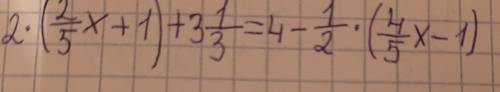 2·(2/5x+1)+3 1/3=4-1/2·(4/5x-1)